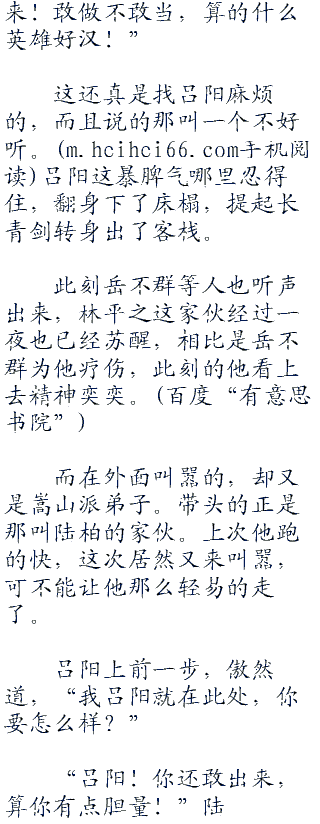 来！敢做不敢当，算的什么
英雄好汉！”
这还真是找吕阳麻烦
的，而且说的那叫一个不好
听。(m.hcihci66.com手机阅
读)吕阳这暴脾气哪里忍得
住，翻身下了床榻，提起长
青剑转身出了客栈。
此刻岳不群等人也听声
出来，林平之这家伙经过一
夜也已经苏醒，相比是岳不
群为他疗伤，此刻的他看上
去精神奕奕。(百度“有意思
书院”)
而在外面叫嚣的，却又
是嵩山派弟子。带头的正是
那叫陆柏的家伙。上次他跑
的快，这次居然又来叫嚣，
可不能让他那么轻易的走
了。
吕阳上前一步，傲然
道，“我吕阳就在此处，你
要怎么样？”
“吕阳！你还敢出来，
算你有点胆量！”陆